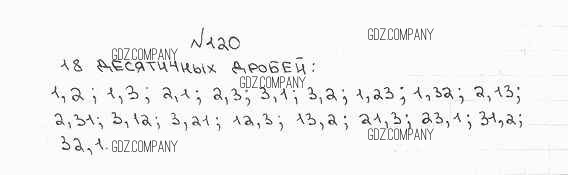 №120
GDZ.COMPANY
GDZ.COMPANY
18 ДЕСЯТИЧНЫХ ДРОБЕЙ:
GDZ.COMPANY
1,2; 1,3; 2,1; 2,3; 3,1; 3,2; 1,23; 1,32; 2,13;
2,31; 3,12; 3,21; 12,3; 13,2; 21,3; 23,1; 31,2;
GDZ.COMPANY
32,1.
GDZ.COMPANY